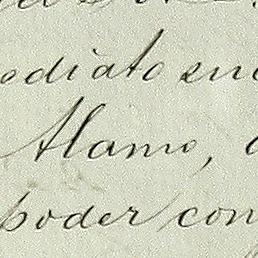 ediato en
Alamo,
poder con